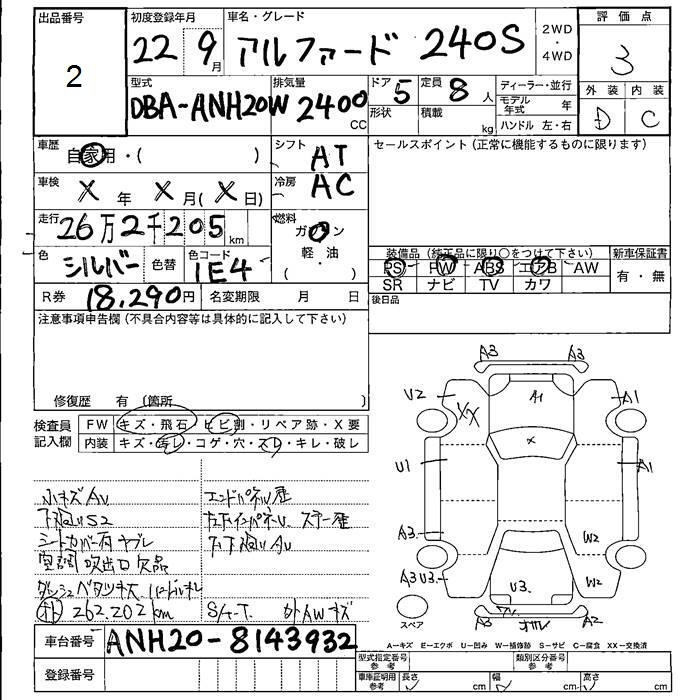 出品番号
2
初度登録年月
22 9月
車名・グレード
アルファード 240S
2WD
・
4WD
評価点
3
外装 内装
D C
型式
DBA-ANH20W
排気量
2400 CC
ドア 5
形状
定員 8 人
積載 kg
ディーラー・並行
モデル年式 年
ハンドル 左・右
車歴
自家用・( )
シフト
AT
車検
X 年 X 月(X 日)
冷房
AC
走行
26万2千205 km
燃料
ガソリン
軽・油
( )
色
シルバー
色替
色コード
1E4
R券 18,290円
名変期限 月 日
セールスポイント(正常に機能するものに限ります)
装備品(純正品に限り○をつけて下さい)
PS PW ABS エアB AW
SR ナビ TV カワ
新車保証書
有・無
後日品
注意事項申告欄(不具合内容等は具体的に記入して下さい)
修復歴 有(箇所 )
検査員
記入欄
FW キズ・飛石・ヒビ割・リペア跡・X要
内装 キズ・汚レ・コゲ・穴・スレ・キレ・破レ
小キズAU
下廻りS2
シートカバー有 ヤブレ
空調吹出口欠品
ダッシュベタツキズ
262.202km
エンドパネル歴
ステー歴
下廻りAU
S/A-T.
外AWキズ
A3 A3
U2 A1 A1
XX
X
U1 A1
A3
W2
A3 U3
W2
U3
A3 A2
スペア
A-キズ E-エクボ U-凹み W-補修跡 S-サビ C-腐食 XX-交換済
車台番号 ANH20-8143932
登録番号
型式指定番号
参考
類別区分番号
参考
車庫証明用
参考
長さ cm
幅 cm
高さ cm